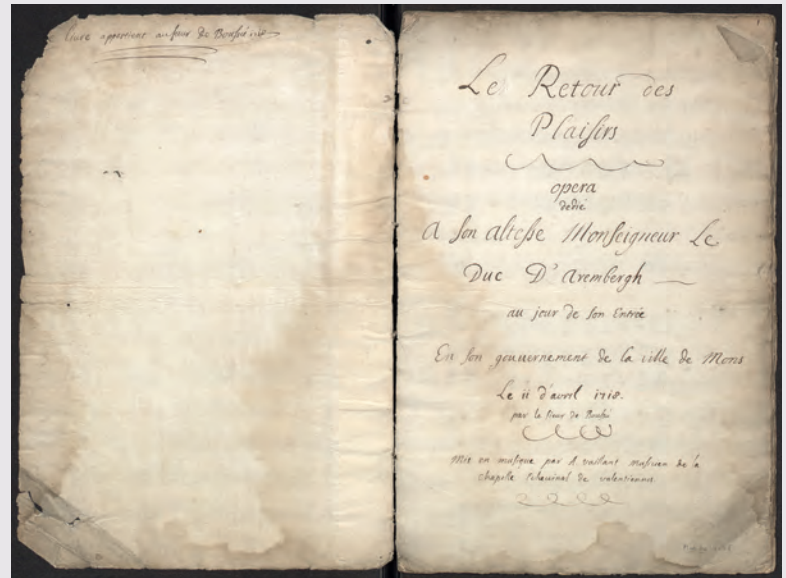 livre appartient au sieur de
Le Retour des
Plaisirs
opera
dedié
A son altesse Monseigneur Le
Duc D'arembergh
au jour de son Entrée
En son gouvernement de la ville de Mons
Le ii d'avril 1718.
par le sieur de
Mis en musique par A. vaillant musicien de la
chapelle de valentiennes